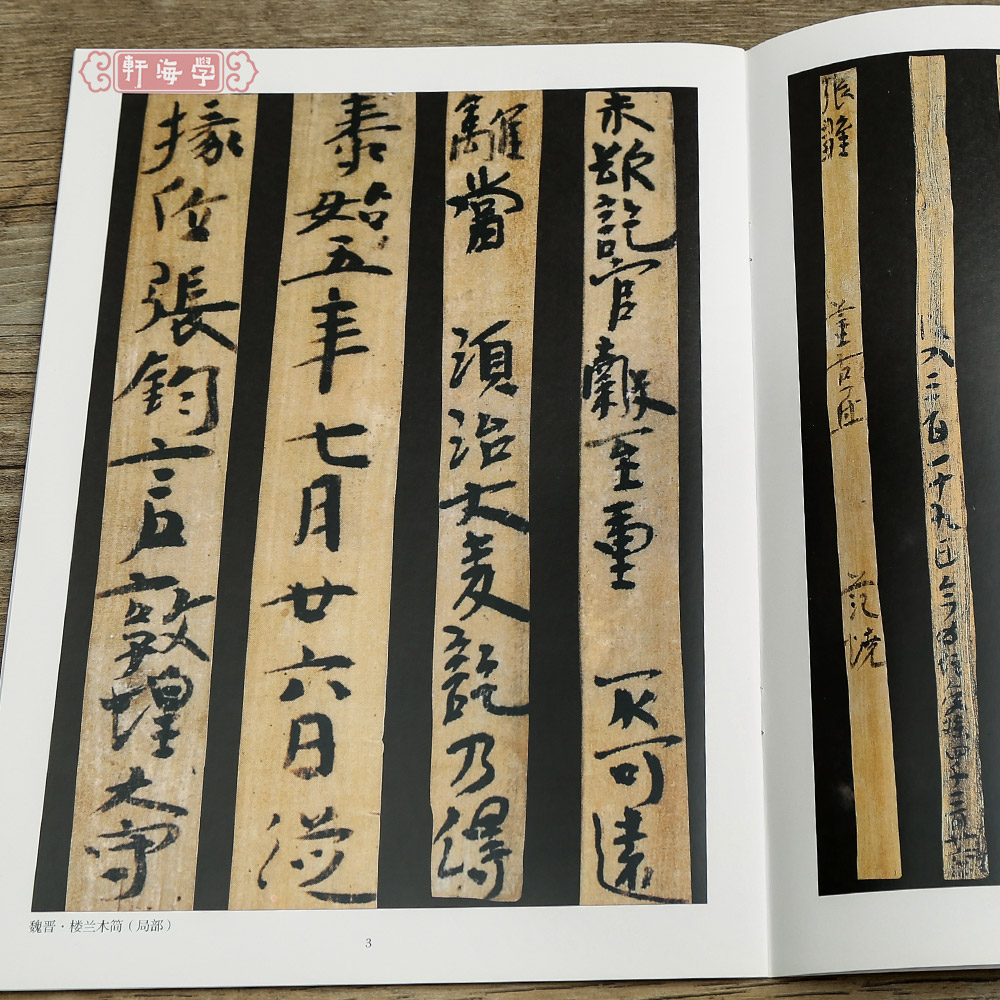 學海軒
未欲訖官穀至重不可遠
離當須治大麦訖乃得
泰始五年七月廿六日從
掾位張鈞言敦煌大守
魏晋·楼兰木简（局部）
3
入三百一十九匹今
張雛